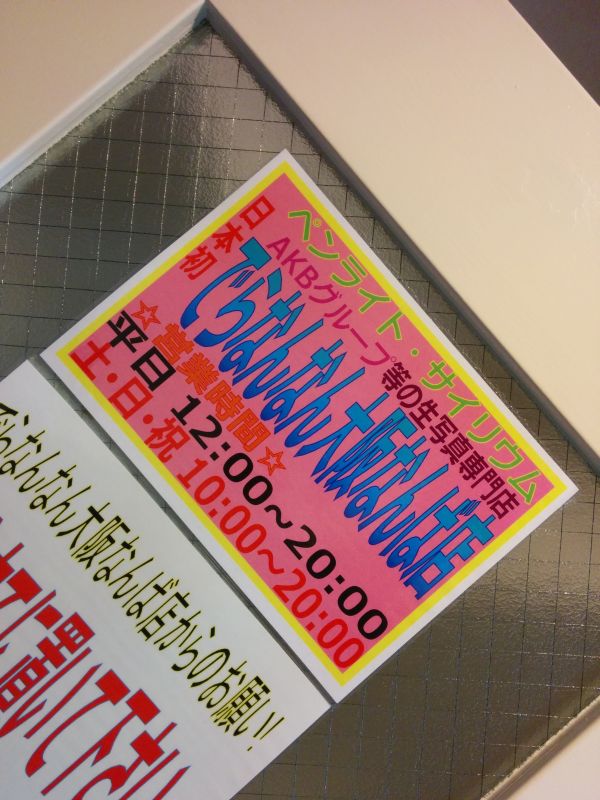 ペンライト・サイリウム
日本初
AKBグループ等の生写真専門店
でらなんなん大阪なんば店
☆営業時間☆
平日 12:00~20:00
土・日・祝 10:00~20:00
でらなんなん大阪なんば店からのお願い!
に置いて下さい